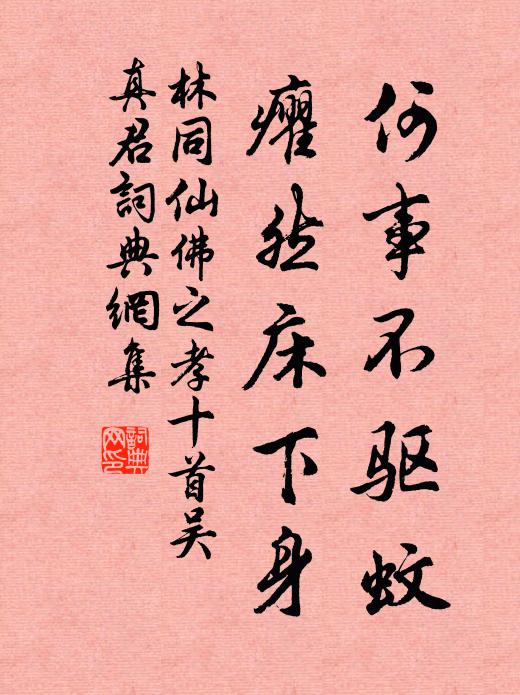 何事不驱蚊
癯然床下身
林同仙佛之孝十首吴
真君詞典網集
詞典网印